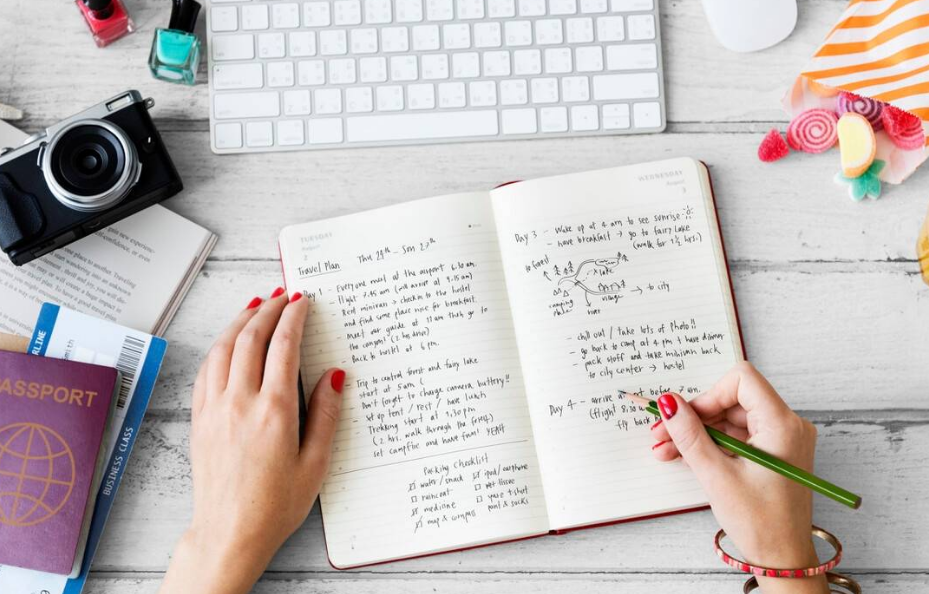 TUESDAY
August
2
Travel Plan Thu 29th - Sun 2
Day 1 - Everyone meet at the airport 6:30 am.
- flight 7.45 am (will arrive at 9.15 am)
- Rent minivan → checkin to the hostel
and find some place nice for breakfast.
- meet our guide at 11 am then go to
the canyon! (2 hrs drive)
- Back to hostel at 6 pm.
- Trip to central forest and fairy lake
start at 5 am
- Don't forget to charge camera battery!!
- Set up tent / rest / have lunch
- Trekking start at 1.30 pm
(2 hrs. walk through the forest)
- set campfire and have fun! YEAH
Packing checklist
water/snack
raincoat
medicine
map & compass
ipod/earphone
wet tissue
spare t-shirt
& socks
WEDNESDAY
August
3
Day 3 - Wake up at 4 am to see sunrise
- have breakfast → go to fairy lake
(walk for 1½ hrs.)
to forest
lake
camping
village
→ to city
- chill out / take lots of photo!!
- go back to camp at 4 pm + have dinner
- pack stuff and take minivan back
to city center → hostel
Day 4 - arrive at before 7 am.
(flight 8.30
fly back
PASSPORT
BUSINESS CLASS